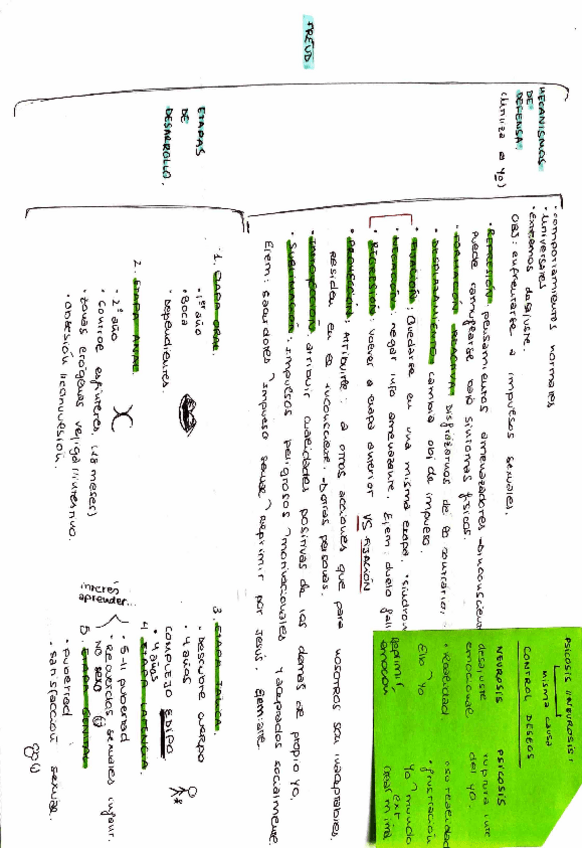 FREUD
MECANISMOS
DE
DEFENSA.
(Utiliza el Yo)
· comportamientos normales
· Universales
· extremos desajuste.
OBJ: enfrentarse a impulsos sexuales.
· REPRESIÓN pensamientos amenazadores → inconscien
puede camuflarse bajo síntomas físicos.
· FORMACIÓN REACTIVA disfrazarnos de lo contrario.
· DESPLAZAMIENTO cambia obj de impulso.
· FIJACIÓN: Quedarse en una misma etapa. "síndro
· NEGACIÓN: negar info amenazante. Ejem: duelo fall
· REGRESIÓN: volver a etapa anterior VS FIJACIÓN
· PROYECCIÓN: Atribuir a otros acciones que para nosotros son inaceptables.
Residen en el inconsciente. → otras personas.
· INTROYECCIÓN: atribuir cualidades positivas de los demás de propio yo.
· SUBLIMACIÓN: Impulsos peligrosos → motivacionales y aceptados socialmente.
Ejem: sacerdotes → impulso sexual → reprimir por Jesús. Ejem: arte
PSICOSIS // NEUROSIS:
misma causa
CONTROL DESEOS
NEUROSIS PSICOSIS
desajuste ruptura
emocional del yo.
· realidad
Ello → Yo · frustración
Yo → mundo
ext
reprimir
emoción
ETAPAS
DE
DESARROLLO.
1. ETAPA ORAL.
· 1er año
· Boca
· Dependientes.
2. ETAPA ANAL.
· 2º año
· Control esfínteres. (18 meses)
· zonas erógenas vejiga/intestino.
· obsesión
3. ETAPA FÁLICA.
· Descubre cuerpo
· 4 años
COMPLEJO EDIPO
· 4 años
4. ETAPA LATENCIA.
· 5-11 pubertad
· Recuerdos sexuales infan.
NO SEXO
interés
aprender...
5. ETAPA GENITAL
· pubertad
· satisfacción sexual.